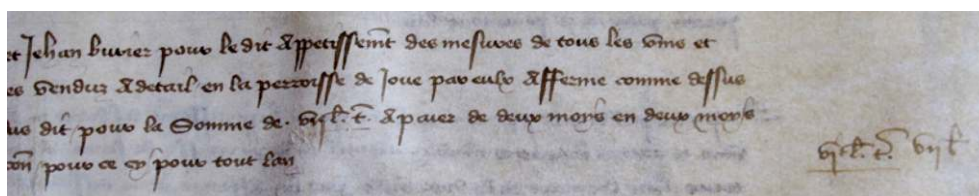 et Jehan buvier pour le dit Appetissemt des mesures de tous les vins et
es venduz A detail en la perroisse de Joue par eulx Afferme comme dessus
us dit pour la Somme de. vijcl. t. A paier de deux moys en deux moys
con pour ce cy pour tout lan
vijcl. t. vijl